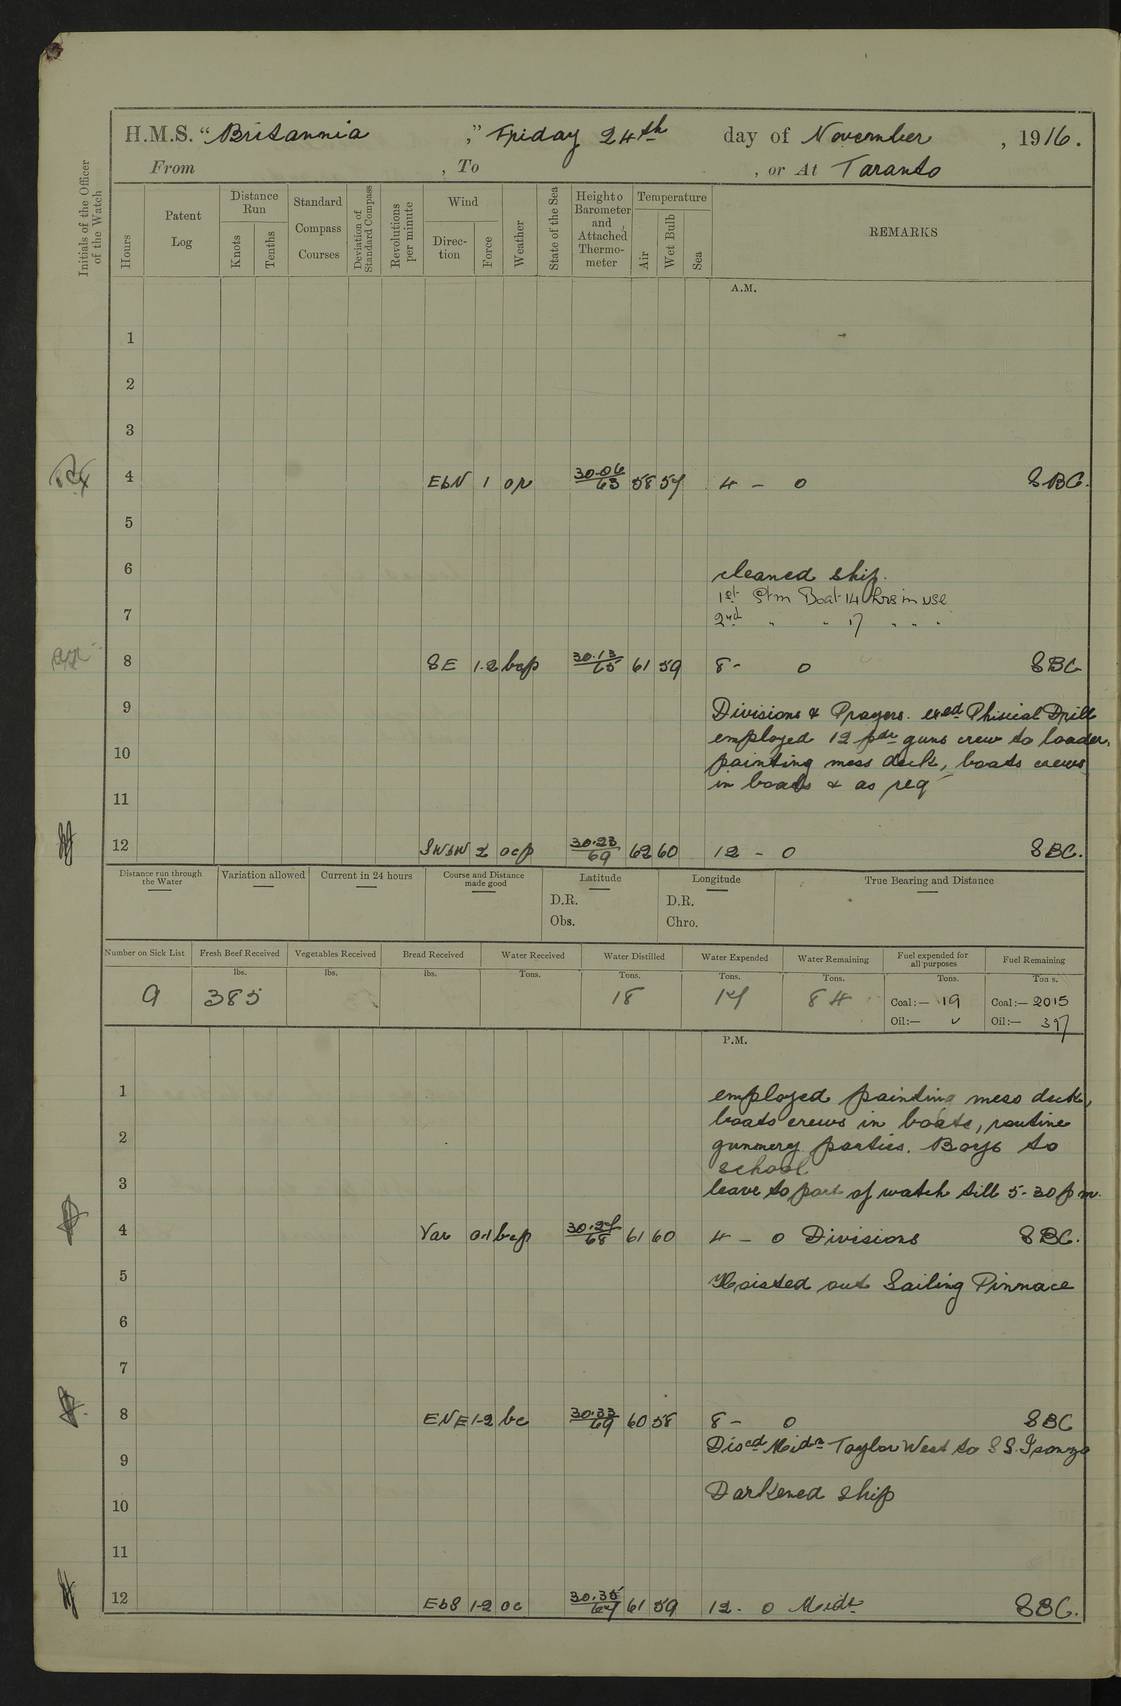 H.M.S. "Britannia," Friday 24th day of November, 1916.
From , To , or At Taranto
Initials of the Officer of the Watch
Hours
Patent Log
Distance Run
Knots
Tenths
Standard Compass Courses
Deviation of Standard Compass
Revolutions per minute
Wind
Direc-tion
Force
Weather
State of the Sea
Height o Barometer and Attached Thermo-meter
Temperature
Air
Wet Bulb
Sea
REMARKS
A.M.
1
2
3
4 EbN 1 or 30.06/63 58 57 4 - 0 SBC.
5
6 cleaned ship.
1st Stm Boat 14 hrs in use
7 2nd " " 17 " " "
8 SE 1-2 bcp 30.13/65 61 59 8 - 0 SBC
9 Divisions & Prayers. exed Phisical Drill
employed 12 pdr guns crew to loader,
10 painting mess deck, boats crews
in boats & as req
11
12 SWbW 2 ocp 30.23/69 62 60 12 - 0 SBC.
Distance run through the Water
Variation allowed
Current in 24 hours
Course and Distance made good
Latitude
D.R.
Obs.
Longitude
D.R.
Chro.
True Bearing and Distance
Number on Sick List 9
Fresh Beef Received lbs. 385
Vegetables Received lbs.
Bread Received lbs.
Water Received Tons.
Water Distilled Tons. 18
Water Expended Tons. 17
Water Remaining Tons. 84
Fuel expended for all purposes Tons.
Coal:— 19
Oil:— ✓
Fuel Remaining Tons.
Coal:— 2015
Oil:— 397
P.M.
1 employed painting mess deck,
boats crews in boats, routine
2 gunnery parties. Boys to
school
3 leave to part of watch till 5-30 pm.
4 Var 0-1 bcp 30.27/68 61 60 4 - 0 Divisions SBC.
5 Hoisted out Sailing Pinnace
6
7
8 ENE 1-2 bc 30.33/69 60 58 8 - 0 SBC
Discd Midn Taylor West to S.S. Isonzo
9
10 Darkened ship
11
12 EbS 1-2 oc 30.35/67 61 59 12 - 0 Midt SBC.